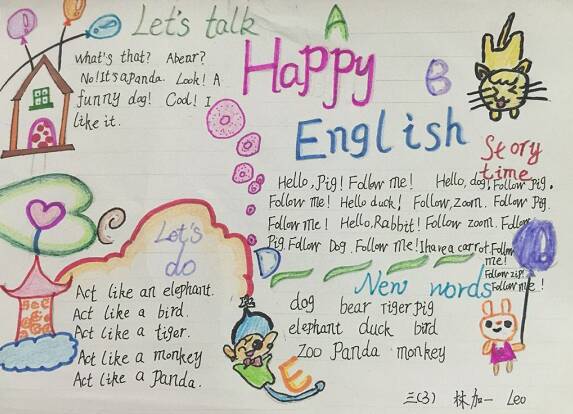 Let's talk
What's that? A bear?
No! It's a panda. Look! A
funny dog! Cool! I
like it.
A
Happy
B
English
Story
time
Hello, Pig! Follow me! Hello, dog! Follow Pig.
Follow me! Hello duck! Follow, zoom. Follow Pig.
Follow me! Hello, Rabbit! Follow zoom. Follow
Pig. Follow Dog. Follow me! I have a carrot. Follow
me!
Follow zip!
Follow me!
C
Let's
do
Act like an elephant.
Act like a bird.
Act like a tiger.
Act like a monkey
Act like a panda.
D
New words
dog bear Tiger pig
elephant duck bird
Zoo Panda monkey
E
三(3) 林加一 Leo